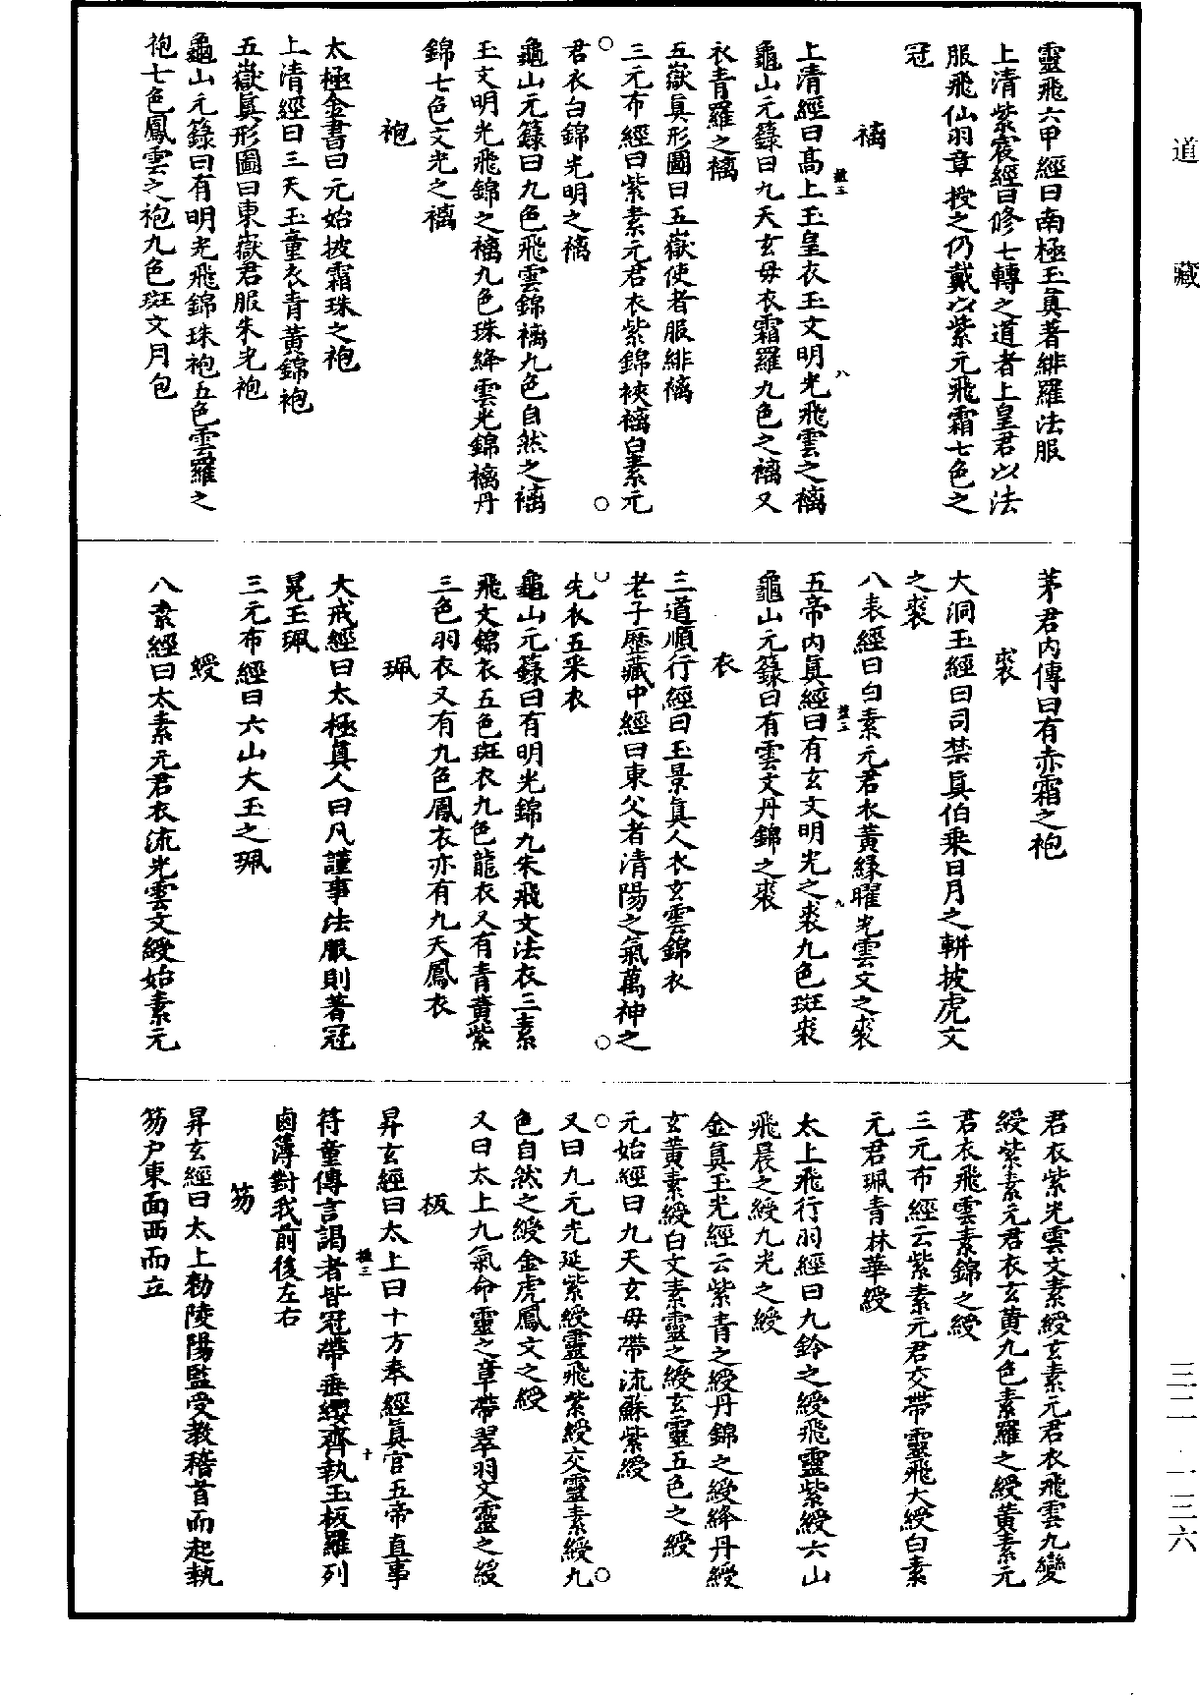 道藏
靈飛六甲經曰南極玉眞著緋羅法服
上清紫宸經曰修七轉之道者上皇君以法
服飛仙羽章授之仍戴以紫元飛霜七色之
冠
襦
上清經曰高上玉皇衣玉文明光飛雲之襦
龜山元籙曰九天玄母衣霜羅九色之襦又
衣青羅之襦
五嶽眞形圖曰五嶽使者服緋襦
三元布經曰紫素元君衣紫錦裌襦白素元
君衣白錦光明之襦
龜山元籙曰九色飛雲錦襦九色自然之襦
玉文明光飛錦之襦九色珠絳雲光錦襦丹
錦七色文光之襦
袍
太極金書曰元始披霜珠之袍
上清經曰三天玉童衣青黃錦袍
五嶽眞形圖曰東嶽君服朱光袍
龜山元籙曰有明光飛錦珠袍五色雲羅之
袍七色鳳雲之袍九色斑文月包
茅君內傳曰有赤霜之袍
裘
大洞玉經曰司禁眞伯乘日月之輧披虎文
之裘
八表經曰白素元君衣黃綠曜光雲文之裘
五帝內眞經曰有玄文明光之裘九色斑裘
龜山元籙曰有雲文丹錦之裘
衣
三道順行經曰玉景眞人衣玄雲錦衣
老子歷藏中經曰東父者清陽之氣萬神之
先衣五采衣
龜山元籙曰有明光錦九朱飛文法衣三素
飛文錦衣五色斑衣九色龍衣又有青黃紫
三色羽衣又有九色鳳衣亦有九天鳳衣
珮
大戒經曰太極眞人曰凡謹事法服則著冠
晃玉珮
三元布經曰六山大玉之珮
綬
八素經曰太素元君衣流光雲文綬始素元
君衣紫光雲文素綬玄素元君衣飛雲九變
綬紫素元君衣玄黃九色素羅之綬黃素元
君衣飛雲素錦之綬
三元布經云紫素元君交帶靈飛大綬白素
元君珮青林華綬
太上飛行羽經曰九鈴之綬飛靈紫綬六山
飛晨之綬九光之綬
金眞玉光經云紫青之綬丹錦之綬絳丹綬
玄黃素綬白文素靈之綬玄靈五色之綬
元始經曰九天玄母帶流蘇紫綬
又曰九元光延紫綬靈飛紫綬交靈素綬九
色自然之綬金虎鳳文之綬
又曰太上九氣命靈之章帶翠羽文靈之綬
板
昇玄經曰太上曰十方奉經眞官五帝直事
符童傳言謁者皆冠帶垂纓齊執玉板羅列
鹵簿對我前後左右
笏
昇玄經曰太上勑陵陽監受教稽首而起執
笏戶東面西而立
三二—一三六